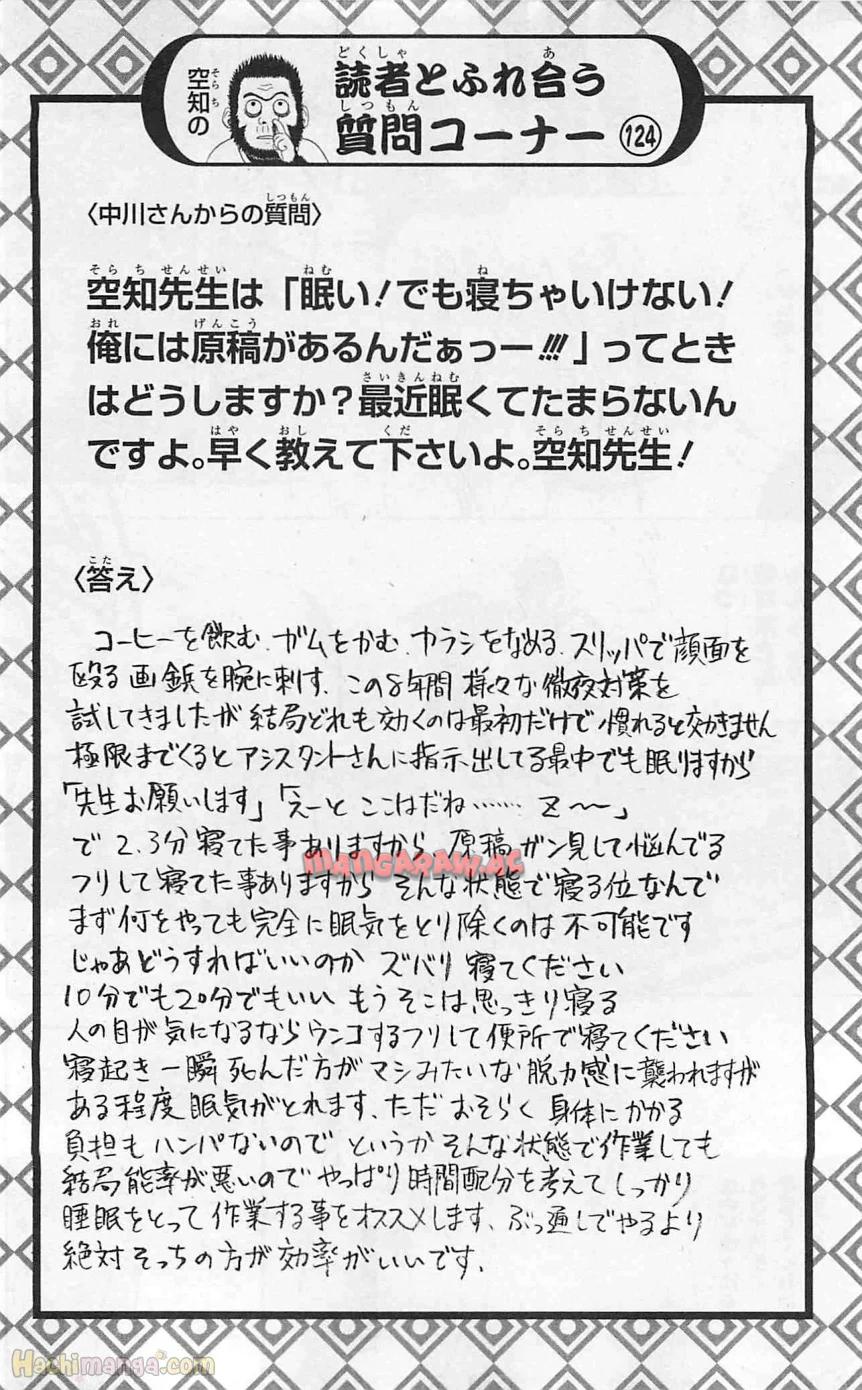 空知の
読者とふれ合う
質問コーナー 124
〈中川さんからの質問〉
空知先生は「眠い！でも寝ちゃいけない！
俺には原稿があるんだぁっー!!!」ってとき
はどうしますか？最近眠くてたまらないん
ですよ。早く教えて下さいよ。空知先生！
〈答え〉
コーヒーを飲む、ガムをかむ、カラシをなめる、スリッパで顔面を
殴る 画鋲を腕に刺す、この8年間 様々な徹夜対策を
試してきましたが 結局どれも効くのは最初だけで 慣れると効きません
極限までくると アシスタントさんに指示出してる最中でも眠りますから
「先生お願いします」「えーと ここはだね…… Z〜〜」
で 2.3分寝てた事ありますから 原稿ガン見して悩んでる
フリして寝てた事ありますから そんな状態で寝る位なんで
まず何をやっても完全に眠気をとり除くのは不可能です
じゃあどうすればいいのか ズバリ 寝てください
10分でも20分でもいい もうそこは思っきり寝る
人の目が気になるならウンコするフリして便所で寝てください
寝起き一瞬 死んだ方がマシみたいな脱力感に襲われますが
ある程度眠気がとれます、ただおそらく身体にかかる
負担もハンパないので というかそんな状態で作業しても
結局能率が悪いので やっぱり時間配分を考えてしっかり
睡眠をとって作業する事をオススメします、ぶっ通しでやるより
絶対そっちの方が効率がいいです.
MANGARAW.AC
Hachimanga.com